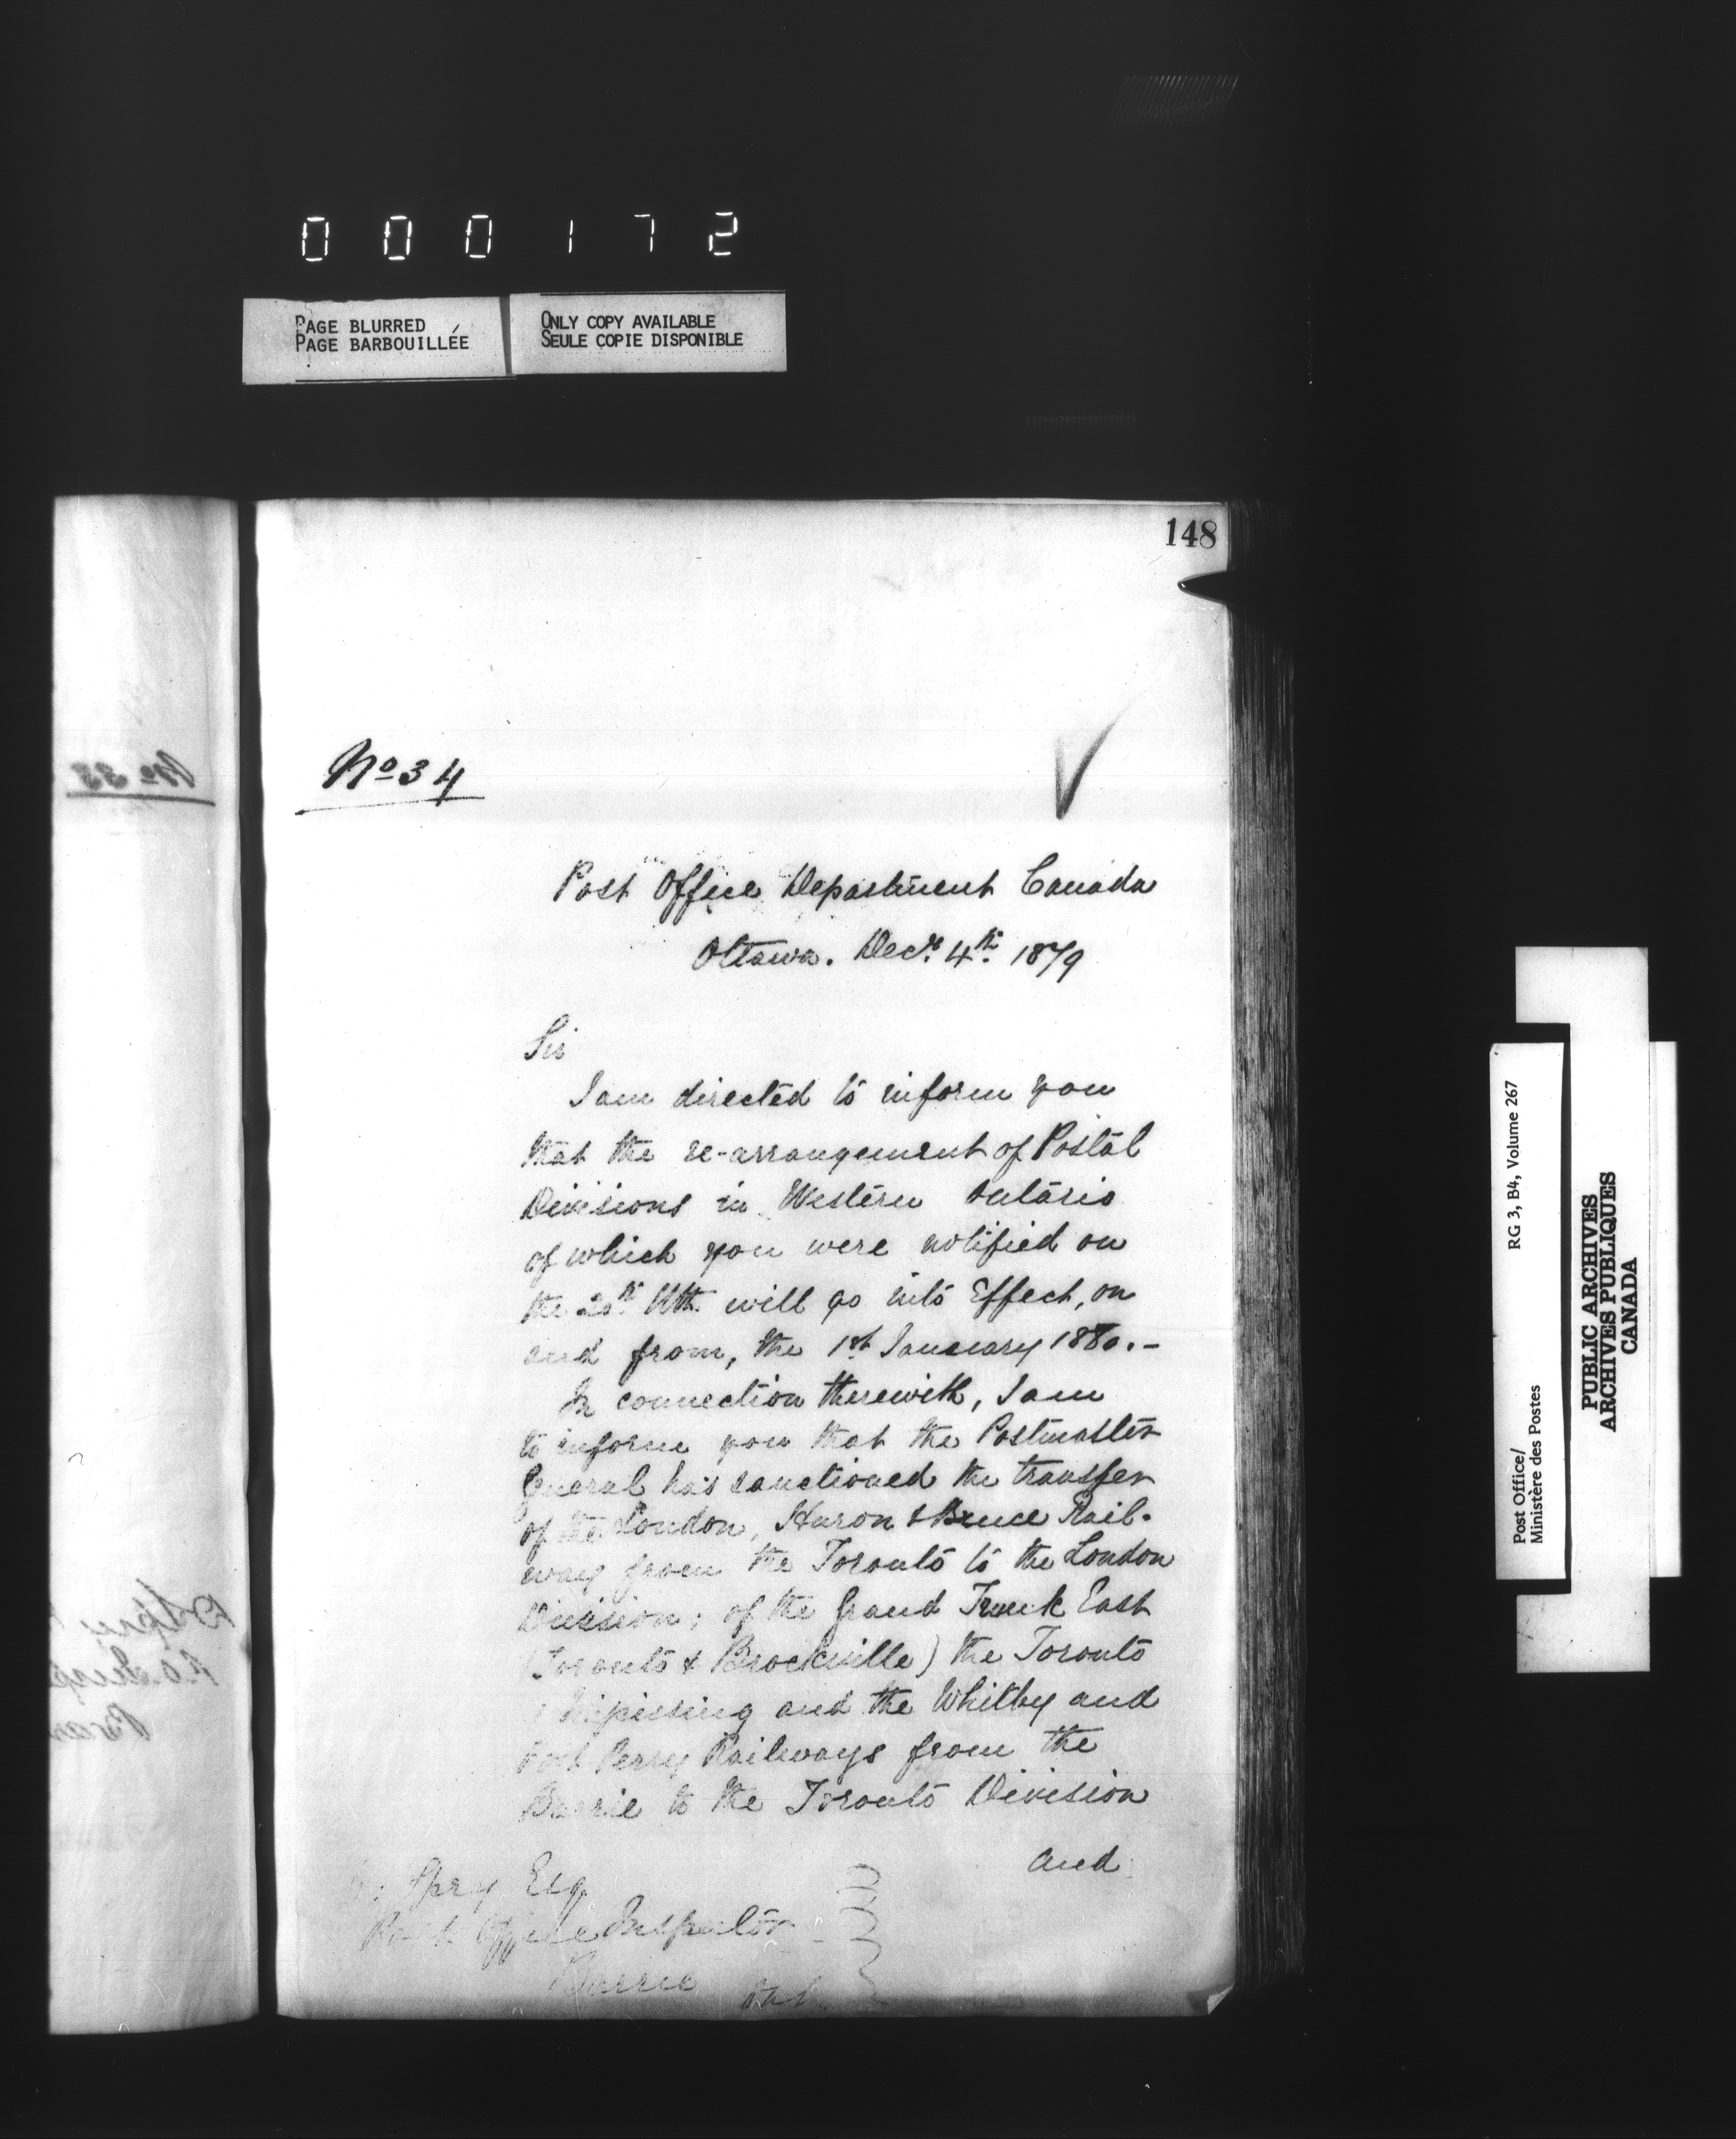 000172
PAGE BLURRED
PAGE BARBOUILLÉE
ONLY COPY AVAILABLE
SEULE COPIE DISPONIBLE
148
No 34
Post Office Department Canada
Ottawa. Decr. 4th. 1879
Sir
I am directed to inform you
that the re-arrangement of Postal
Divisions in Western Ontario
of which you were notified on
the 20th Ult. will go into Effect, on
and from, the 1st January 1880.-
In connection therewith, I am
to inform you that the Postmaster
General has sanctioned the transfer
of the London, Huron & Bruce Rail-
way from the Toronto to the London
Division; of the Grand Trunk East
(Toronto & Brockville) the Toronto
Nipissing and the Whitby and
Port Perry Railways from the
Barrie to the Toronto Division
and
Spry Esq
Post Office Inspector
Barrie Ont
No 35
Post Office/
Ministère des Postes
RG 3, B4, Volume 267
PUBLIC ARCHIVES
ARCHIVES PUBLIQUES
CANADA